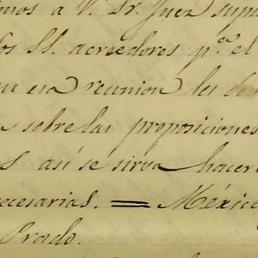 a V. Sr. Juez
los SS. acreedores p.ª el
esa reunion les
sobre las proposiciones
así se sirva hacer
ecesarias. = México
Prado.